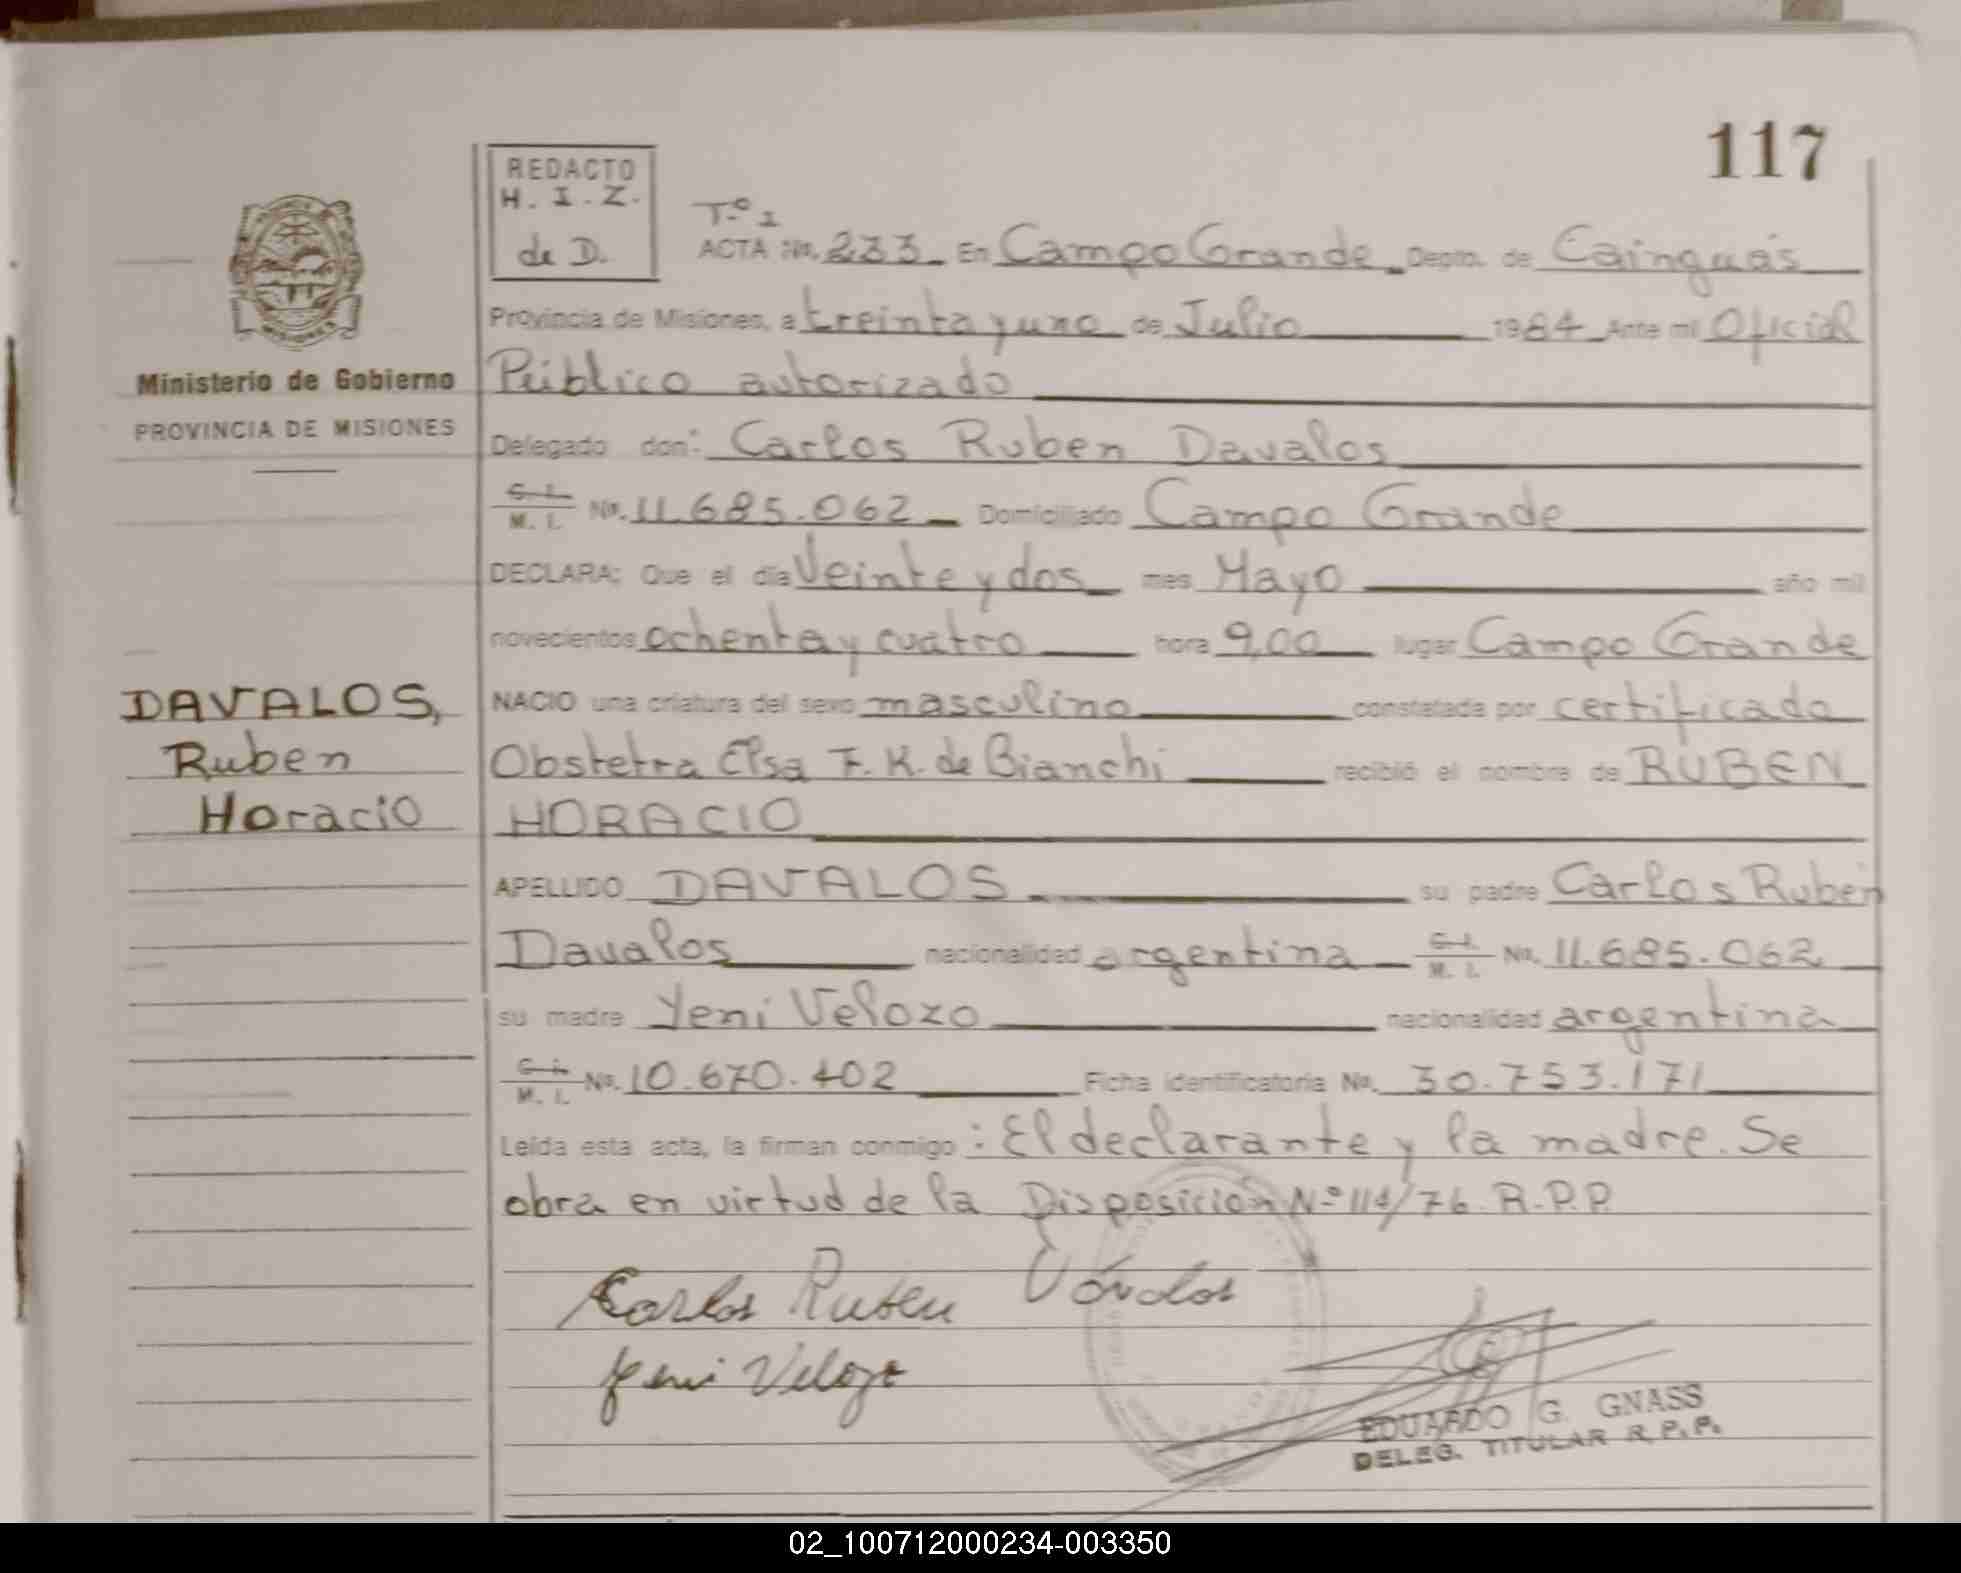 117
REDACTO
H. I. Z.
de D.
Tº 1
ACTA No. 233 En Campo Grande Depto. de Cainguás
Provincia de Misiones, a treinta y uno de Julio 1984 Ante mi Oficial
Ministerio de Gobierno
Público autorizado
PROVINCIA DE MISIONES
Delegado don: Carlos Ruben Davalos
C. I.
M. I. No. 11.685.062 Domiciliado Campo Grande
DECLARA: Que el día Veinte y dos mes Mayo año mil
novecientos ochenta y cuatro hora 9,00 lugar Campo Grande
DAVALOS,
Ruben
Horacio
NACIO una criatura del sexo masculino constatada por certificado
Obstetra Elsa F. K. de Bianchi recibió el nombre de RUBEN
HORACIO
APELLIDO DAVALOS su padre Carlos Ruben
Davalos nacionalidad argentina C. I. M. I. No. 11.685.062
su madre Yeni Velozo nacionalidad argentina
C. I.
M. I. No. 10.670.402 Ficha identificatoria No. 30.753.171
Leída esta acta, la firman conmigo: El declarante y la madre. Se
obra en virtud de la Disposición Nº 114/76 R.P.P.
Carlos Ruben Davalos
Yeni Velozo
EDUARDO G. GNASS
DELEG. TITULAR R.P.P.
02_100712000234-003350